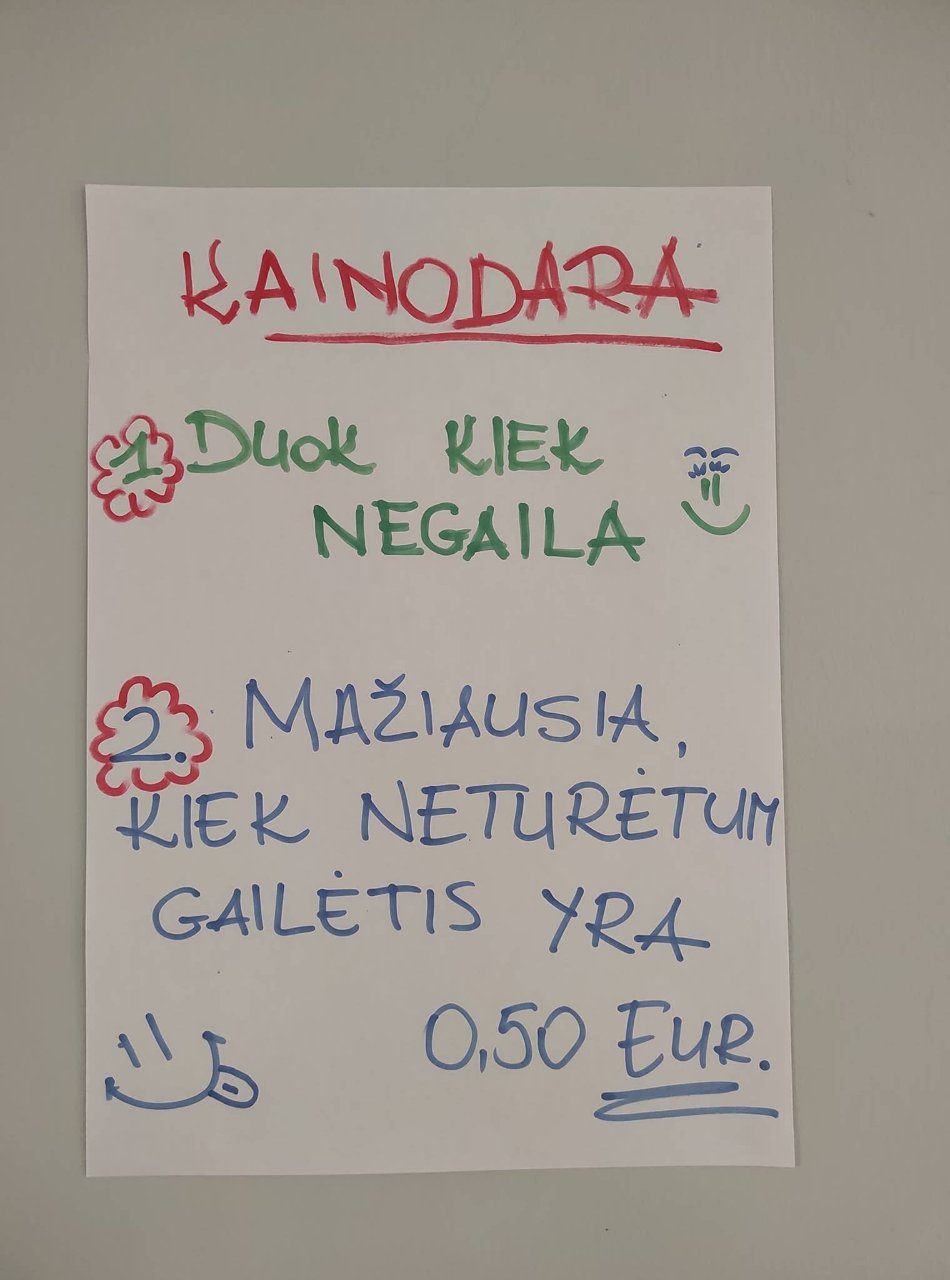 KAINODARA
1 DUOK KIEK
NEGAILA
2. MAŽIAUSIA,
KIEK NETURĖTUM
GAILĖTIS YRA
0,50 EUR.